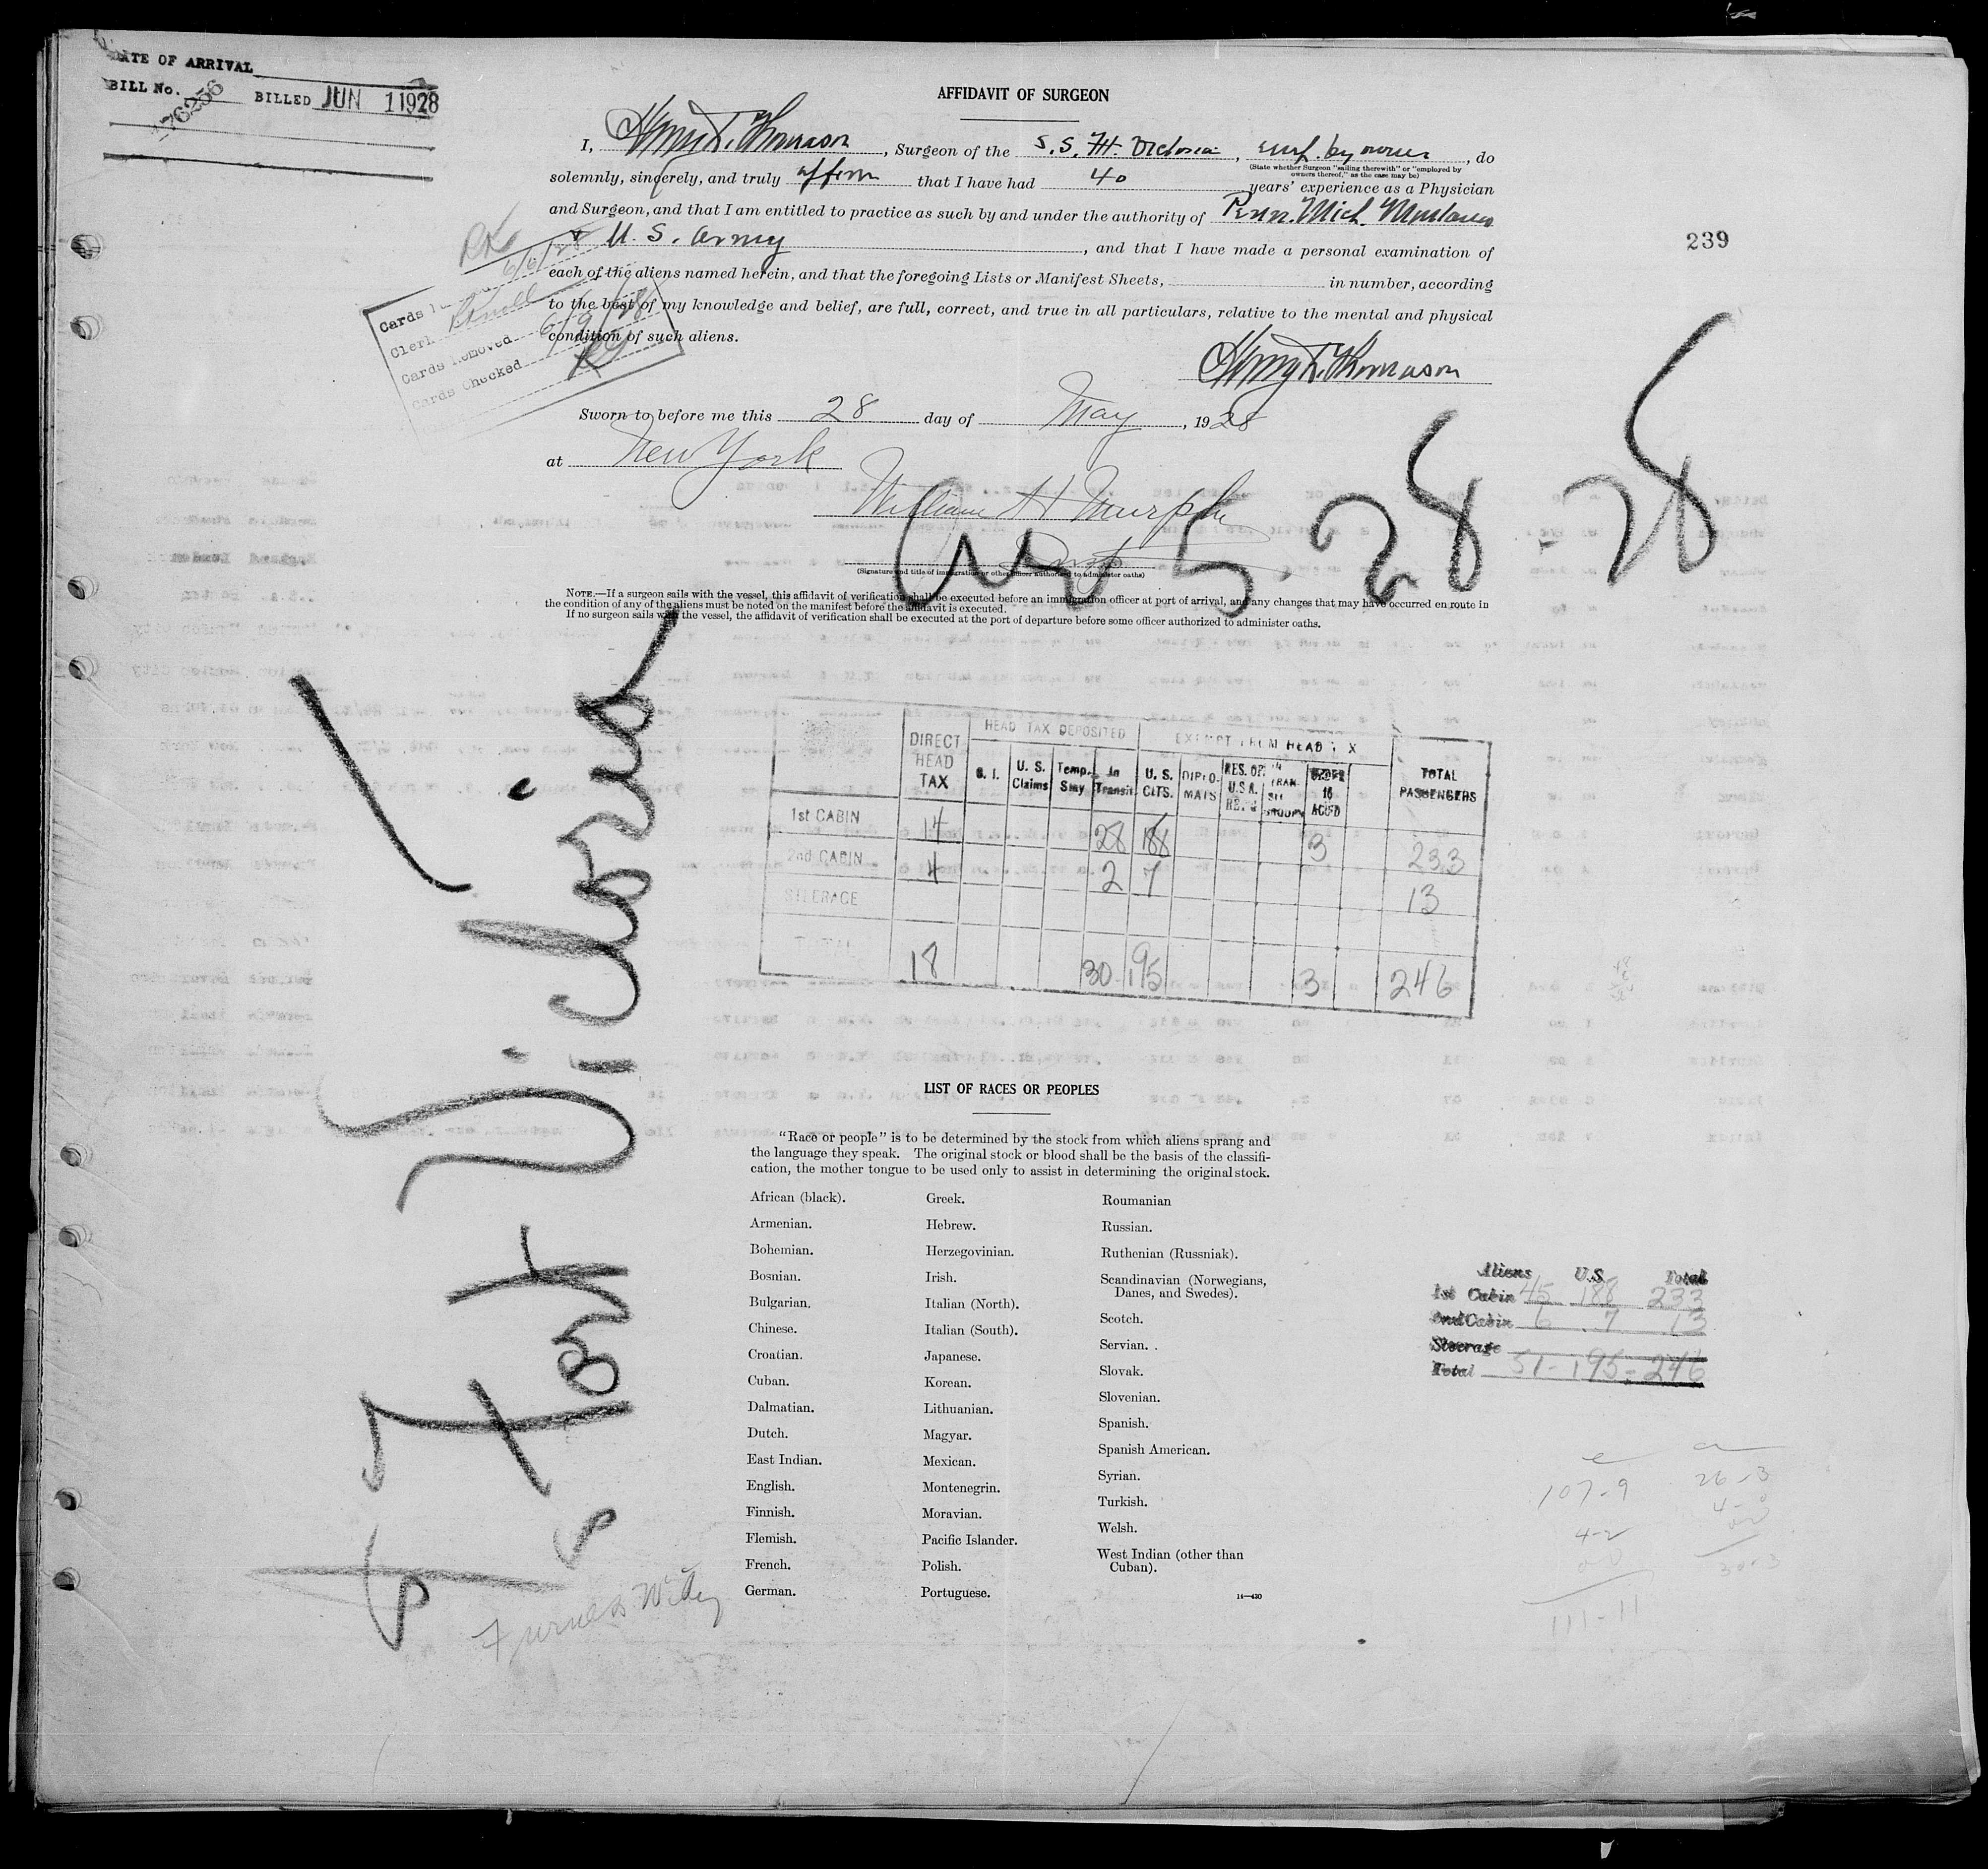 DATE OF ARRIVAL
BILL No. 176256 BILLED JUN 1 1928
AFFIDAVIT OF SURGEON
I, Henry D. Thomason, Surgeon of the S.S. Ft Victoria, emp. by owner, do
(State whether Surgeon "sailing therewith" or "employed by
owners thereof," as the case may be)
solemnly, sincerely, and truly affirm that I have had 40 years' experience as a Physician
and Surgeon, and that I am entitled to practice as such by and under the authority of Penn. Mich. Montana
U. S. Army, and that I have made a personal examination of
each of the aliens named herein, and that the foregoing Lists or Manifest Sheets, in number, according
to the best of my knowledge and belief, are full, correct, and true in all particulars, relative to the mental and physical
condition of such aliens.
239
Cards
Clerk
Cards Removed 6/9/28
Cards Checked
Henry D. Thomason
Sworn to before me this 28 day of May, 1928
at New York
William H Murphy
Insp
(Signature and title of immigration or other officer authorized to administer oaths)
Arr 5. 28 - 28
NOTE.—If a surgeon sails with the vessel, this affidavit of verification shall be executed before an immigration officer at port of arrival, and any changes that may have occurred en route in
the condition of any of the aliens must be noted on the manifest before the affidavit is executed.
If no surgeon sails with the vessel, the affidavit of verification shall be executed at the port of departure before some officer authorized to administer oaths.
S.S. Fort Victoria
Furness Withy
DIRECT HEAD TAX HEAD TAX DEPOSITED EXEMPT FROM HEAD TAX TOTAL PASSENGERS
S. I. U. S. Claims Temp. Stay In Transit U. S. CITS. DIPLOMATS RES. OF U.S.A. UNDER 16 ACC'D
1st CABIN 14 28 188 3 233
2nd CABIN 4 2 7 13
STEERAGE
TOTAL 18 30 195 3 246
LIST OF RACES OR PEOPLES
"Race or people" is to be determined by the stock from which aliens sprang and
the language they speak. The original stock or blood shall be the basis of the classifi-
cation, the mother tongue to be used only to assist in determining the original stock.
African (black).
Armenian.
Bohemian.
Bosnian.
Bulgarian.
Chinese.
Croatian.
Cuban.
Dalmatian.
Dutch.
East Indian.
English.
Finnish.
Flemish.
French.
German.
Greek.
Hebrew.
Herzegovinian.
Irish.
Italian (North).
Italian (South).
Japanese.
Korean.
Lithuanian.
Magyar.
Mexican.
Montenegrin.
Moravian.
Pacific Islander.
Polish.
Portuguese.
Roumanian
Russian.
Ruthenian (Russniak).
Scandinavian (Norwegians,
Danes, and Swedes).
Scotch.
Servian.
Slovak.
Slovenian.
Spanish.
Spanish American.
Syrian.
Turkish.
Welsh.
West Indian (other than
Cuban).
14—430
Aliens U.S. Total
1st Cabin 45 188 233
2nd Cabin 6 7 13
Steerage
Total 51 - 195 - 246
107-9 26-3
4-2 4-0
00
111-11 30-3